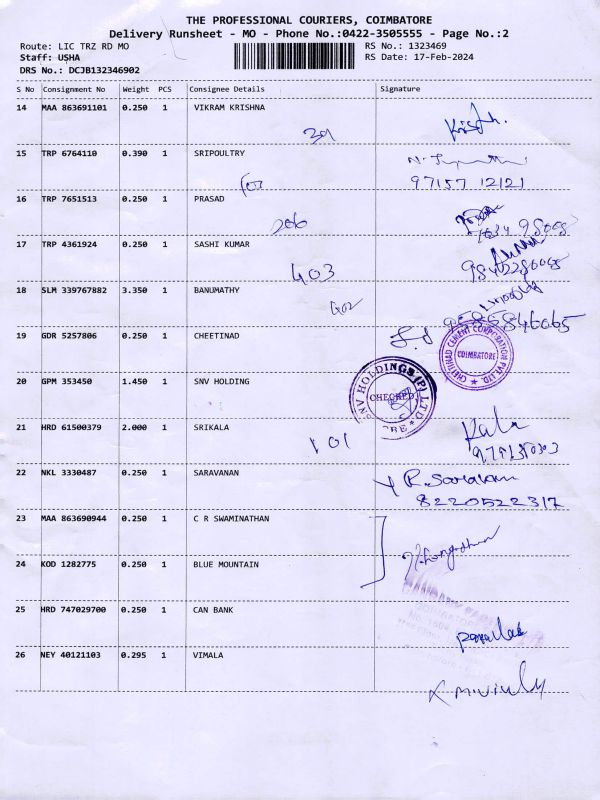 THE PROFESSIONAL COURIERS, COIMBATORE
Delivery Runsheet - MO - Phone No.:0422-3505555 - Page No.:2
Route: LIC TRZ RD MO
RS No.: 1323469
Staff: USHA
RS Date: 17-Feb-2024
DRS No.: DCJB132346902
S No Consignment No Weight PCS Consignee Details Signature
14 MAA 863691101 0.250 1 VIKRAM KRISHNA
15 TRP 6764110 0.390 1 SRIPOULTRY
97157 12121
16 TRP 7651513 0.250 1 PRASAD
206
17 TRP 4361924 0.250 1 SASHI KUMAR
403
18 SLM 339767882 3.350 1 BANUMATHY
602
19 GDR 5257806 0.250 1 CHEETINAD
CHETTINAD CEMENT CORPORATION PVT LTD.
COIMBATORE
20 GPM 353450 1.450 1 SNV HOLDING
SNV HOLDINGS (P) LTD
CHECKED
21 HRD 61500379 2.000 1 SRIKALA
101
Kala
22 NKL 3330487 0.250 1 SARAVANAN
R. Saravanan
8220522317
23 MAA 863690944 0.250 1 C R SWAMINATHAN
24 KOD 1282775 0.250 1 BLUE MOUNTAIN
25 HRD 747029700 0.250 1 CAN BANK
26 NEY 40121103 0.295 1 VIMALA